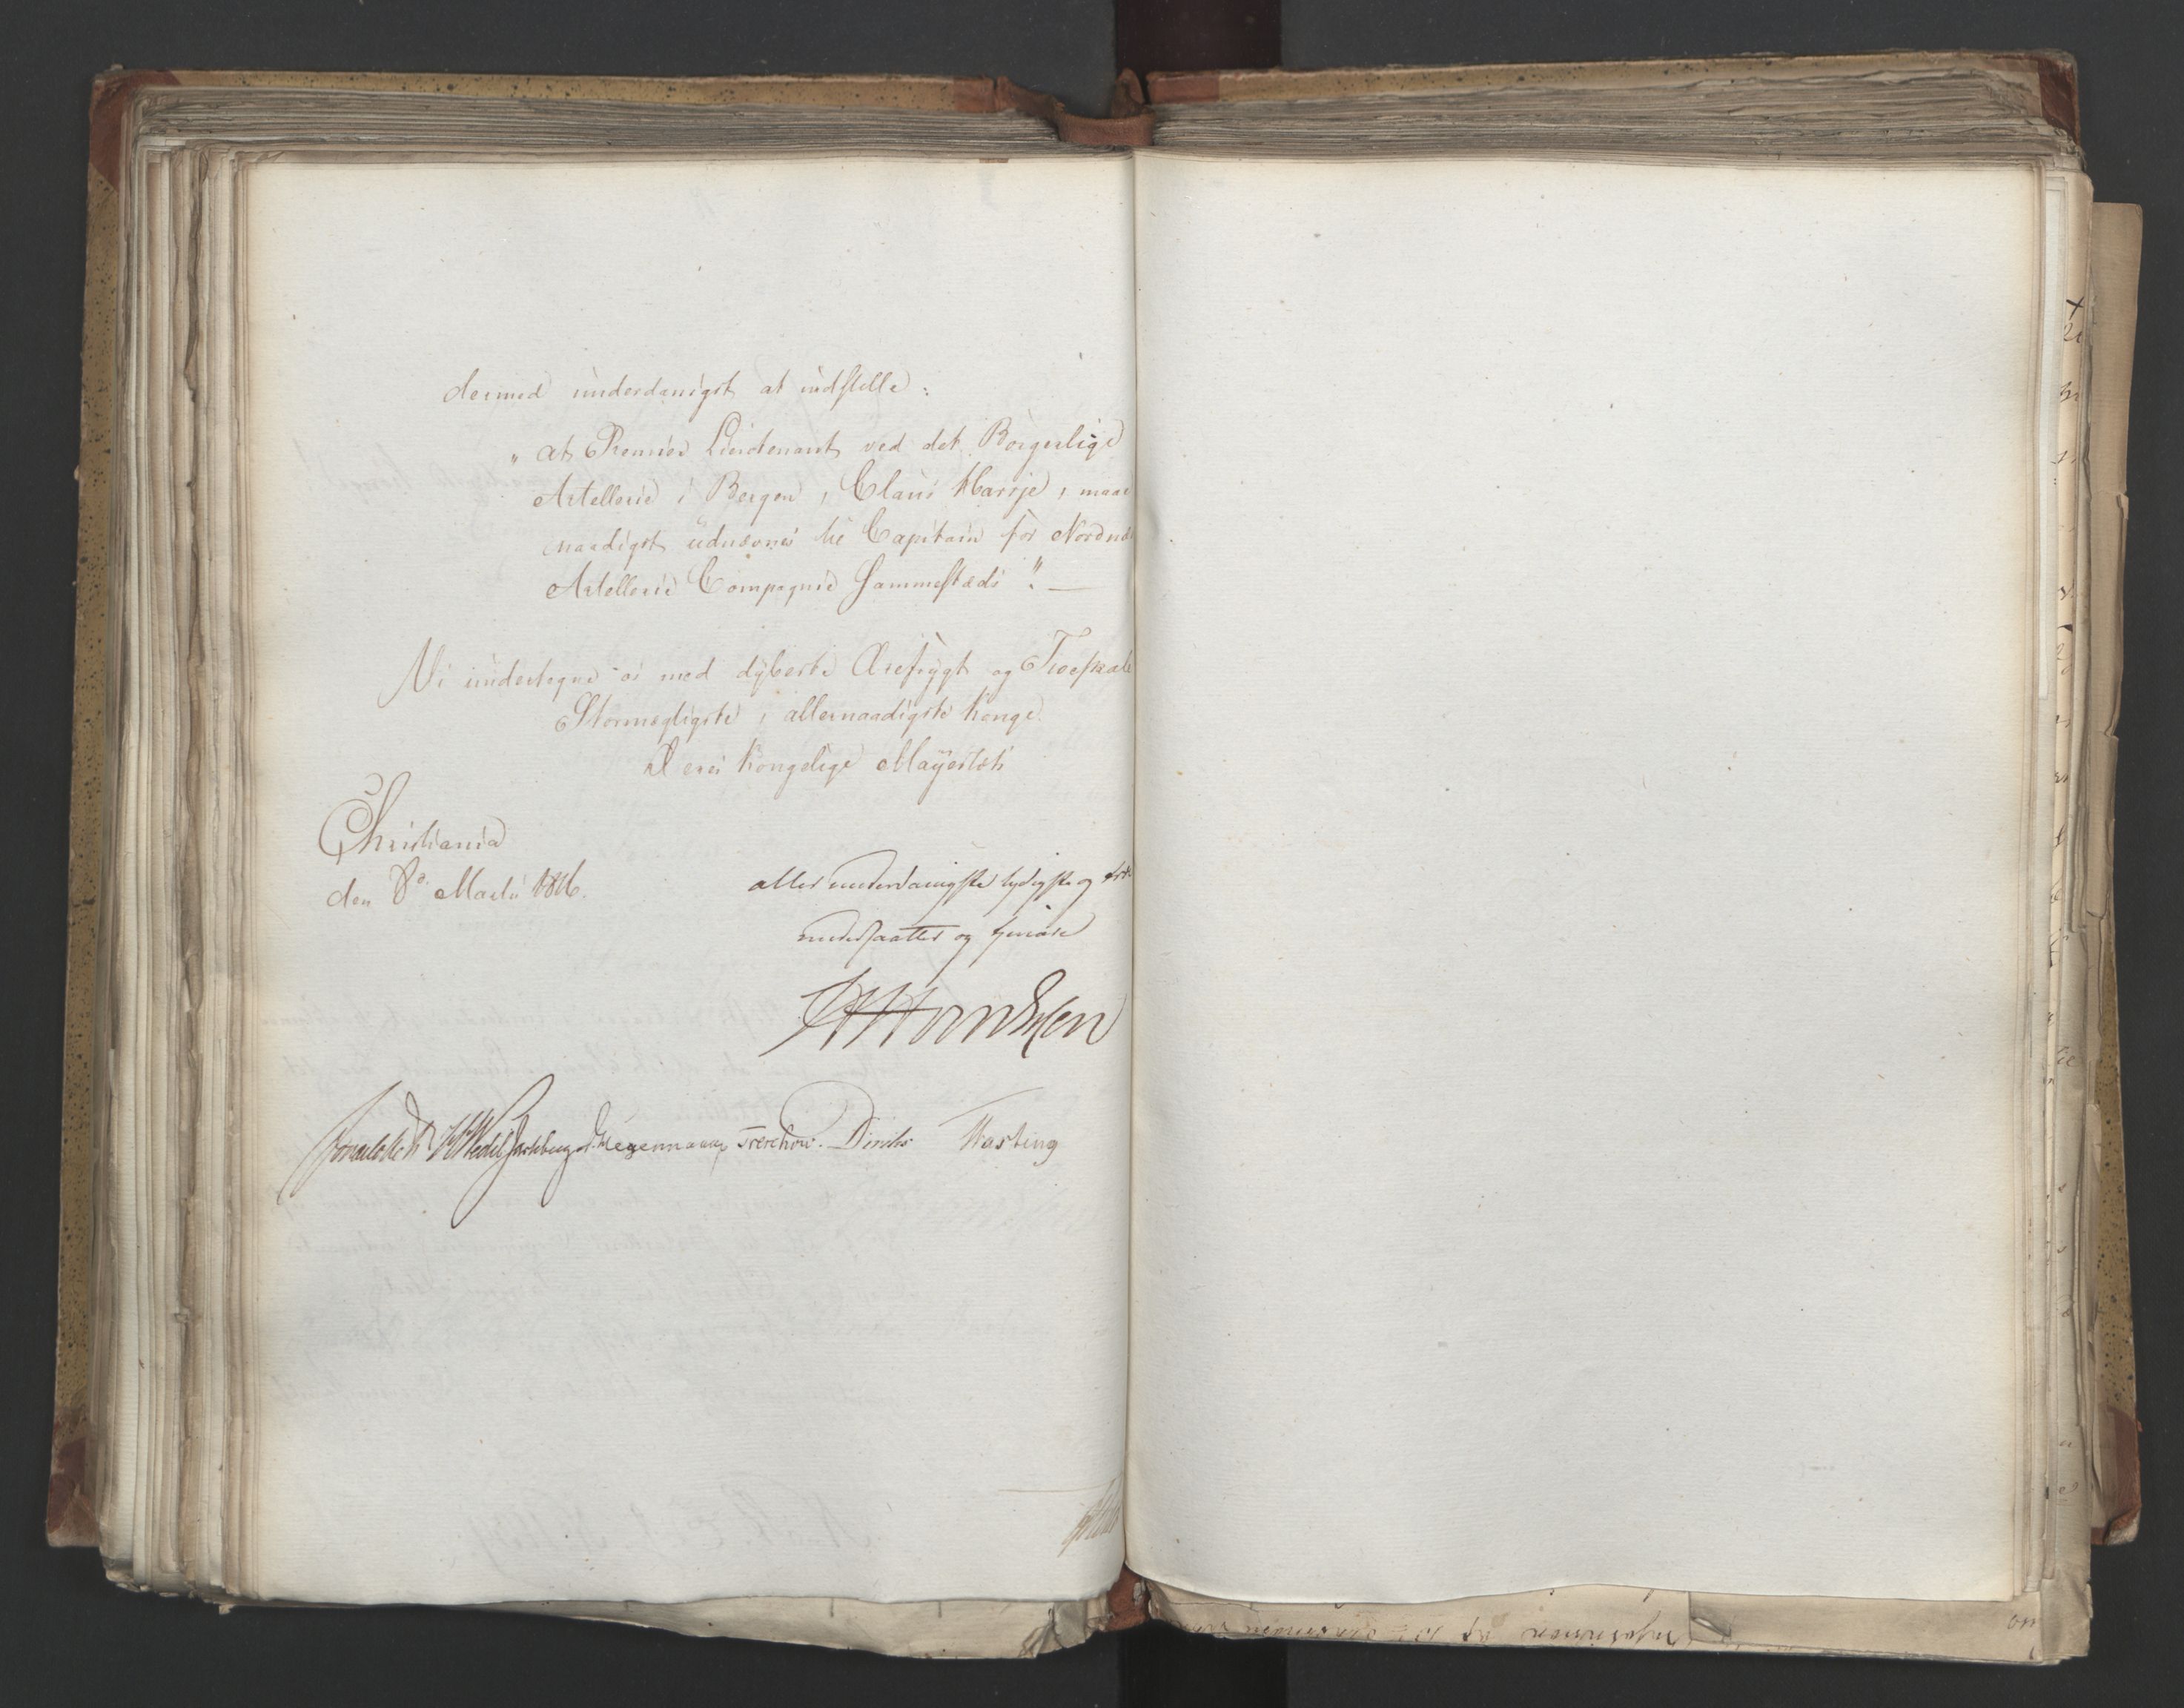 dermed underdanigst at indstille:
„at Premier Lieutenant ved det Borgerlige
Artellerie i Bergen, Claus Harije, maae
naadigst udnævnes til Capitain for Nordnæs
Artellerie Compagnie sammestæds". —
Vi undertegne os med dybeste Ærefrygt og Troeskab
Stormægtigste, allernaadigste Konge
Deres Kongelige Mayestæts
Christiania
den 8de Martii 1816.
allerunderdanigste lydigste og
undersaatter og tjenere
Sommerhielm Wedel Jarlsberg D. Hegermann Treschow. Diriks Fasting